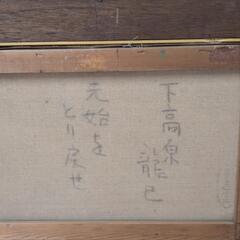 下高原龍己
元始を
とり戻せ